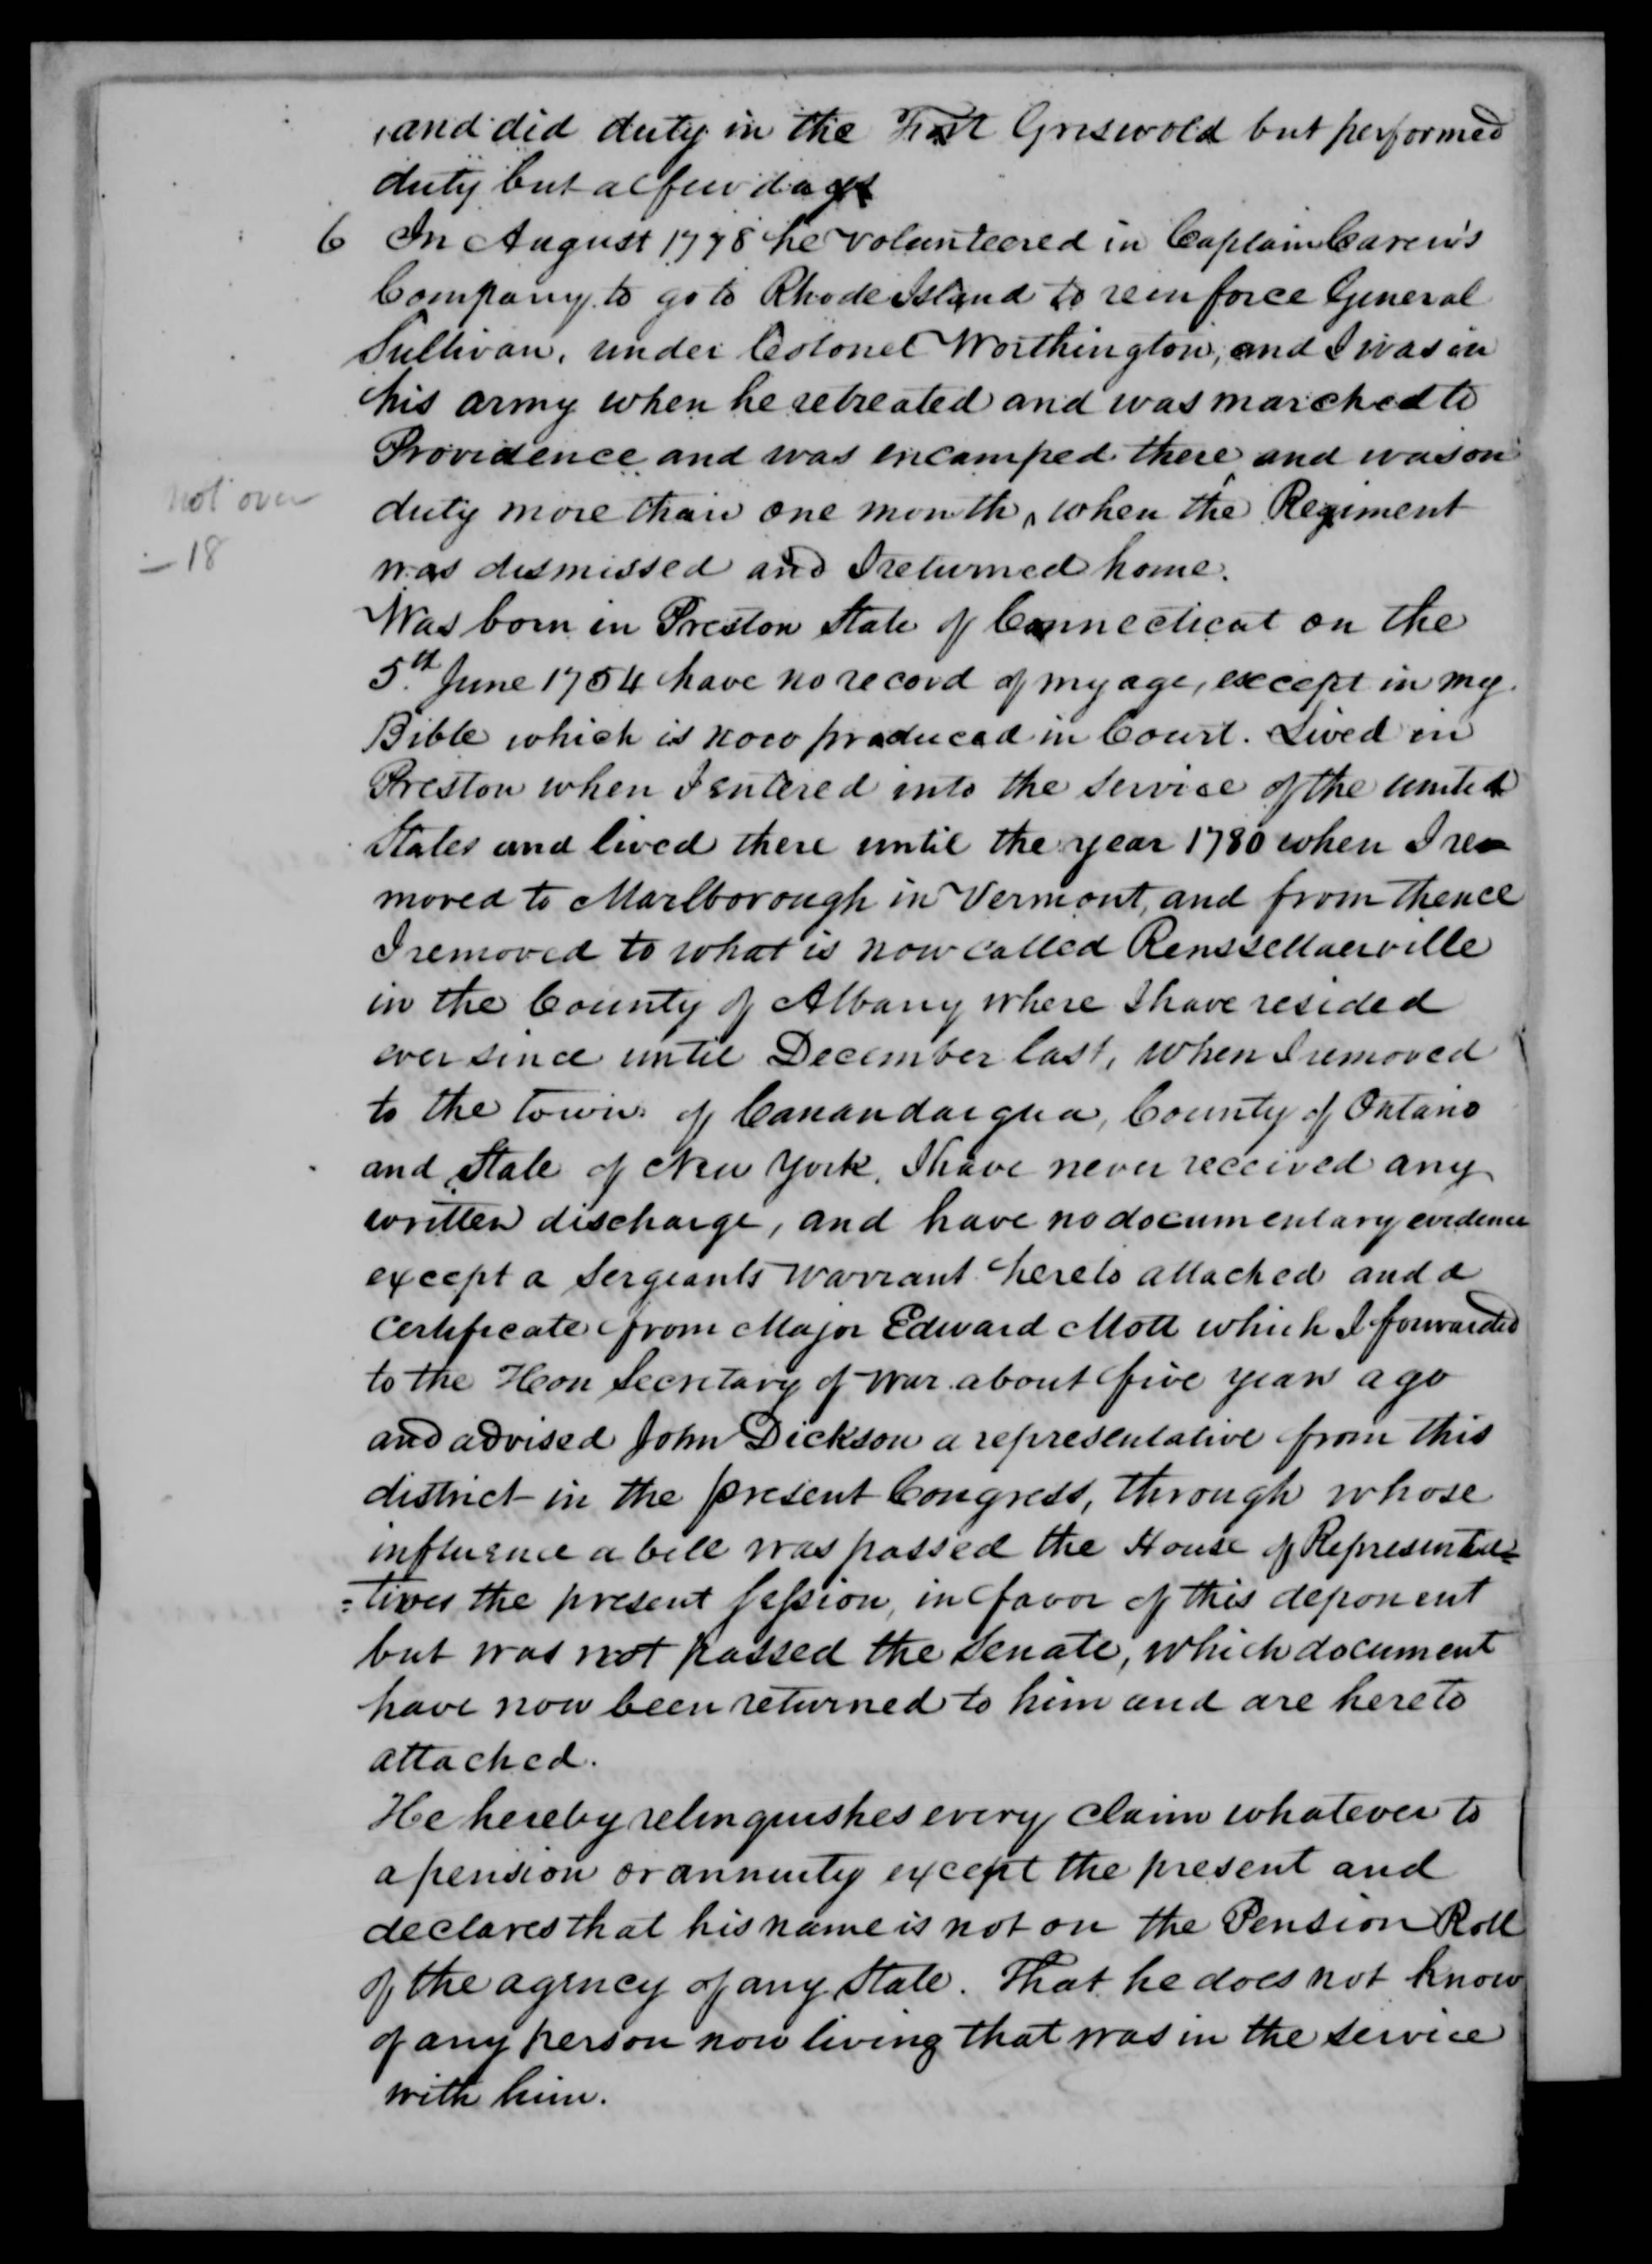 and did duty in the Fort Griswold but performed
duty but a few days
6 In August 1778 he volunteered in Captain Carew's
Company to go to Rhode Island to reinforce General
Sullivan, under Colonel Worthington, and I was in
his army when he retreated and was marched to
Providence and was encamped there and was on
not over
duty more than one month, when the Regiment
- 18
was dismissed and I returned home.
Was born in Preston State of Connecticut on the
5th June 1754 have no record of my age, except in my
Bible which is now produced in Court. Lived in
Preston when I entered into the service of the united
States and lived there until the year 1780 when I re=
moved to Marlborough in Vermont, and from thence
I removed to what is now called Renssellaerville
in the County of Albany where I have resided
ever since until December last, when I removed
to the town of Canandaigua, County of Ontario
and State of New York. I have never received any
written discharge, and have no documentary evidence
except a Sergeants Warrant hereto attached and a
certificate from Major Edward Mott which I forwarded
to the Hon Secretary of War about five years ago
and advised John Dickson a representative from this
district in the present Congress, through whose
influence a bill was passed the House of Representa=
=tives the present session, in favor of this deponent
but was not passed the Senate, which document
have now been returned to him and are hereto
attached.
He hereby relinquishes every claim whatever to
a pension or annuity except the present and
declares that his name is not on the Pension Roll
of the agency of any State. That he does not know
of any person now living that was in the service
with him.